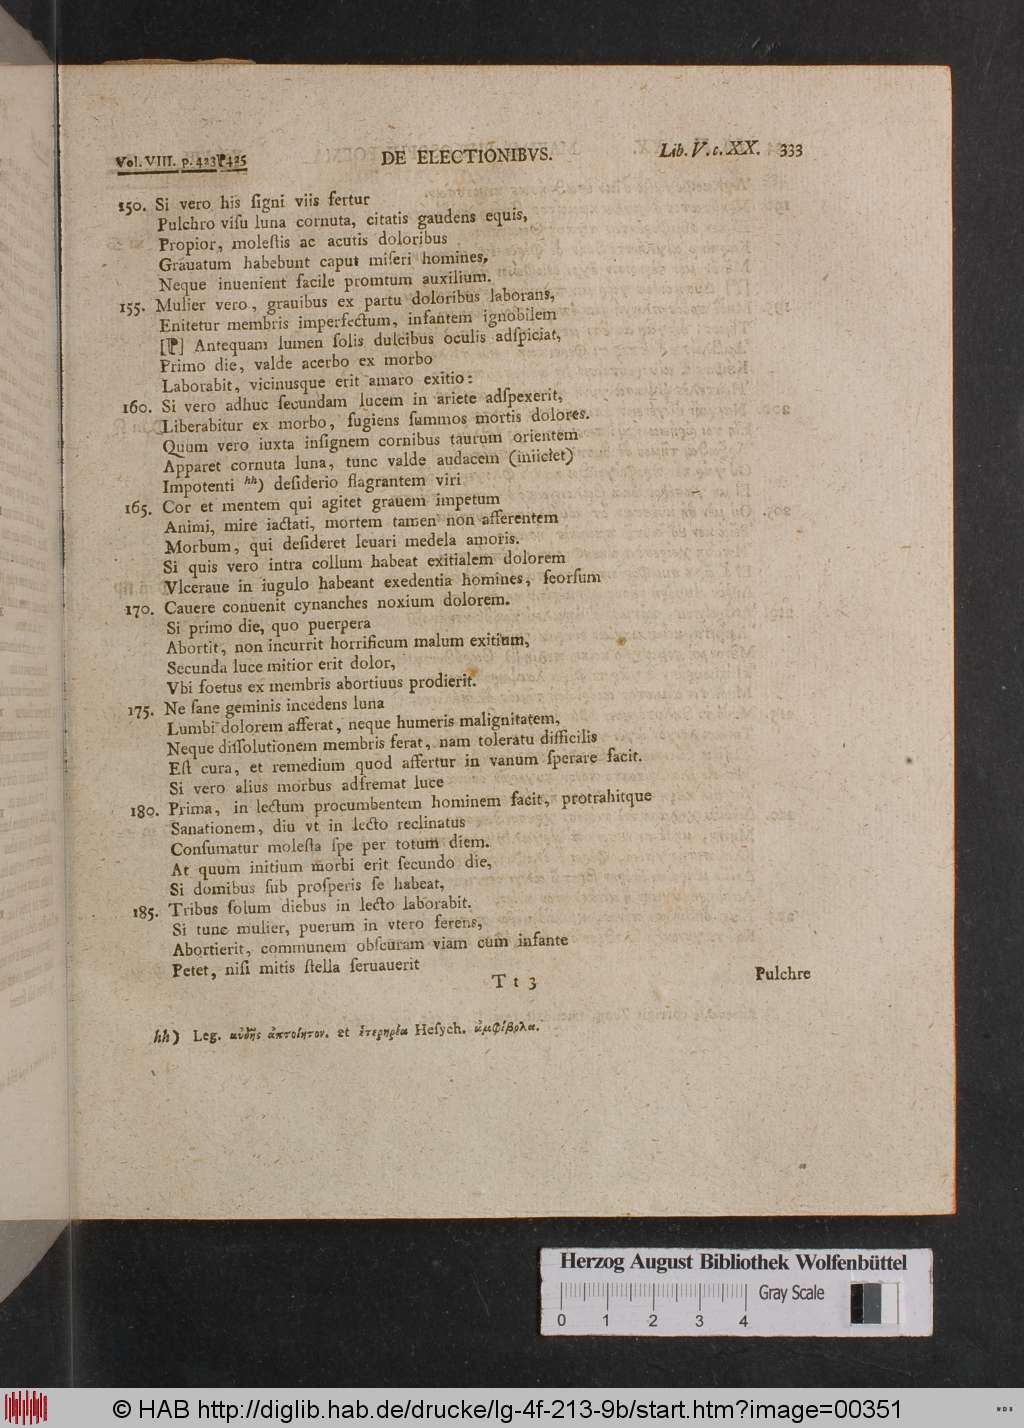 Vol. VIII. p. 423⁋425 DE ELECTIONIBVS. Lib. V. c. XX. 333
150. Si vero his ſigni viis fertur
Pulchro viſu luna cornuta, citatis gaudens equis,
Propior, moleſtis ac acutis doloribus
Grauatum habebunt caput miſeri homines,
Neque inuenient facile promtum auxilium.
155. Mulier vero, grauibus ex partu doloribus laborans,
Enitetur membris imperfectum, infantem ignobilem
[⁋] Antequam lumen ſolis dulcibus oculis adſpiciat,
Primo die, valde acerbo ex morbo
Laborabit, vicinusque erit amaro exitio:
160. Si vero adhuc ſecundam lucem in ariete adſpexerit,
Liberabitur ex morbo, fugiens ſummos mortis dolores.
Quum vero iuxta inſignem cornibus taurum orientem
Apparet cornuta luna, tunc valde audacem (iniiciet)
Impotenti hh) deſiderio flagrantem viri
165. Cor et mentem qui agitet grauem impetum
Animi, mire iactati, mortem tamen non afferentem
Morbum, qui deſideret leuari medela amoris.
Si quis vero intra collum habeat exitialem dolorem
Vlceraue in iugulo habeant exedentia homines, ſeorſum
170. Cauere conuenit cynanches noxium dolorem.
Si primo die, quo puerpera
Abortit, non incurrit horrificum malum exitium,
Secunda luce mitior erit dolor,
Vbi foetus ex membris abortiuus prodierit.
175. Ne ſane geminis incedens luna
Lumbi dolorem afferat, neque humeris malignitatem,
Neque diſſolutionem membris ferat, nam toleratu difficilis
Eſt cura, et remedium quod affertur in vanum ſperare facit.
Si vero alius morbus adfremat luce
180. Prima, in lectum procumbentem hominem facit, protrahitque
Sanationem, diu vt in lecto reclinatus
Conſumatur moleſta ſpe per totum diem.
At quum initium morbi erit ſecundo die,
Si domibus ſub proſperis ſe habeat,
185. Tribus ſolum diebus in lecto laborabit.
Si tunc mulier, puerum in vtero ferens,
Abortierit, communem obſcuram viam cum infante
Petet, niſi mitis ſtella ſeruauerit
T t 3 Pulchre
hh) Leg. αὐδῆς ἀπτοίητον. et ἑτερηρέα Heſych. ἀμφίβολα.
Herzog August Bibliothek Wolfenbüttel
Gray Scale
0 1 2 3 4
© HAB http://diglib.hab.de/drucke/lg-4f-213-9b/start.htm?image=00351